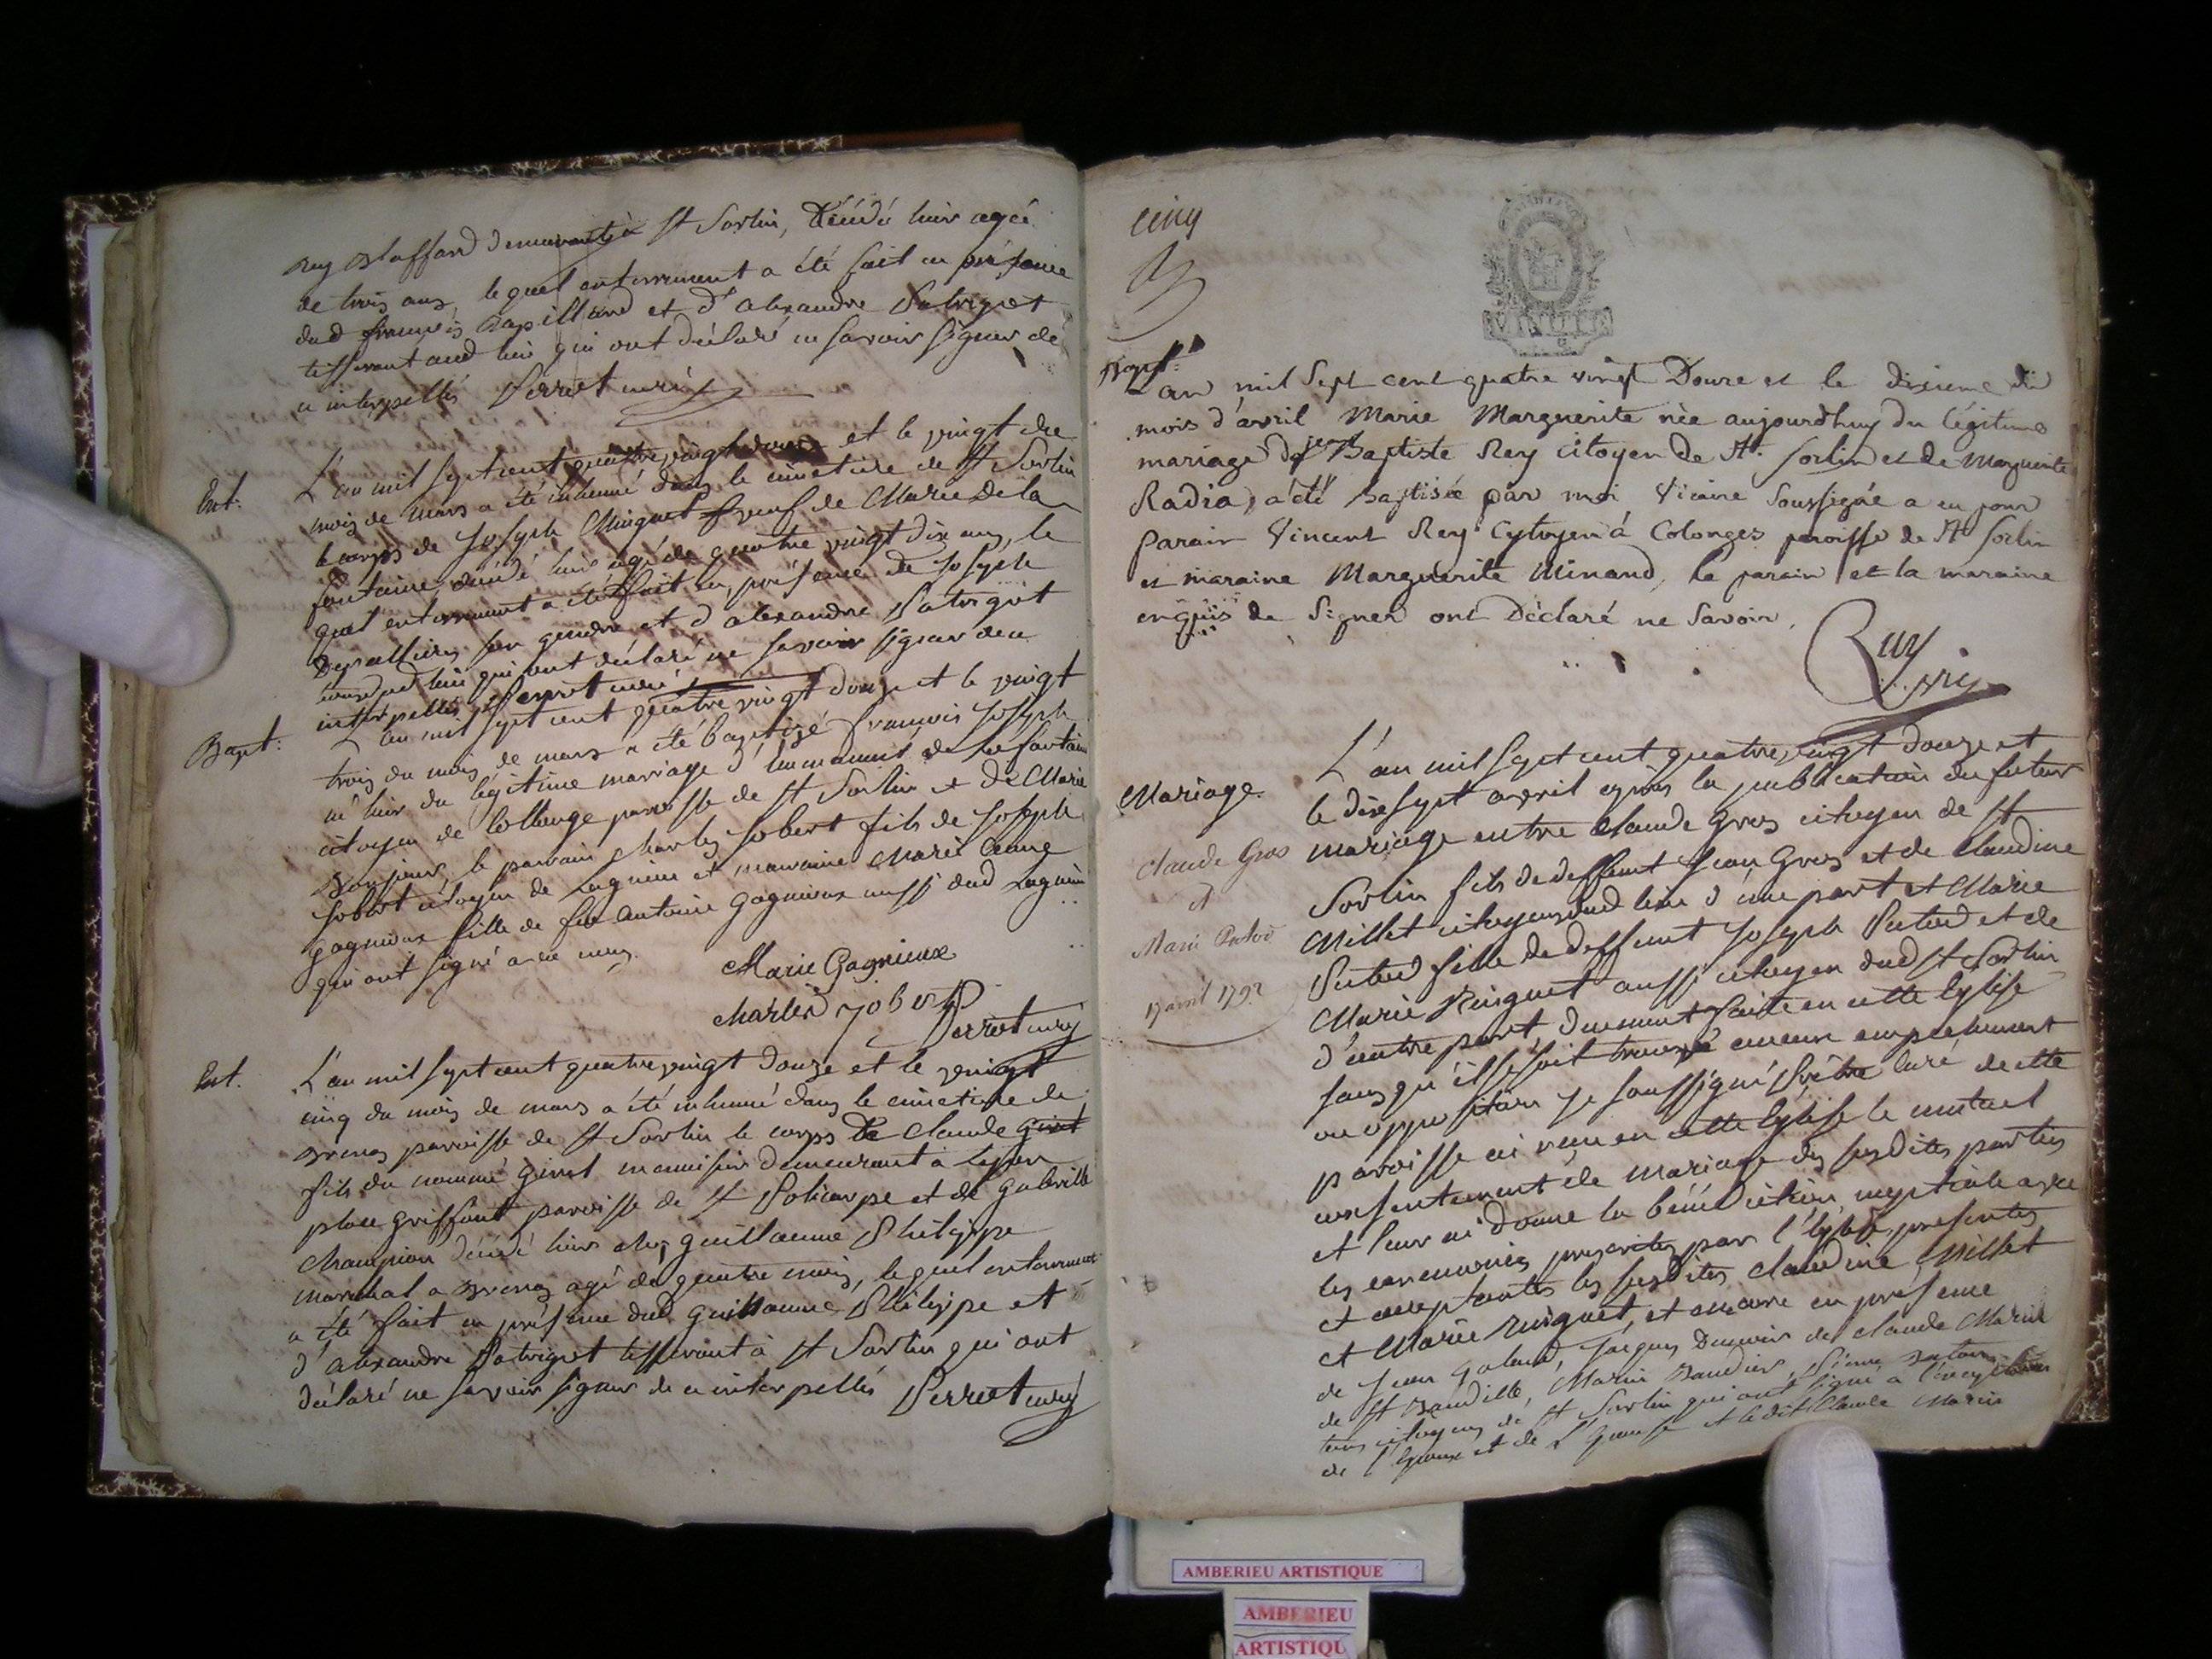 demeurant à St Sorlin, décédé hier agé
de trois ans, le quel enterrement a été fait en présence
dud françois et d'alexandre Patriquet
tisserant aud lieu qui ont déclaré ne savoir signer de
ce interpellés Perret curé
Ent.
L'an mil sept cent quatre vingt douze et le vingt du
mois de mars a été inhumé dans le cimetiere de St Sorlin
le corps de Joseph veuf de Marie De la
fontaine, décédé hier agé de quatre vingt dix ans, le
quel enterrement a été fait en présence de Joseph
son gendre et d'alexandre Patriquet
lieu qui ont déclaré ne savoir signer de ce
interpellés Perret curé
Bapt:
L'an mil sept cent quatre vingt douze et le vingt
trois du mois de mars a été baptisé françois Joseph
né hier du légitime mariage d'
citoyen de Collonge paroisse de St Sorlin et de Marie
le parrain Charles Jobert fils de Joseph
Jobert citoyen de Lagnieu et marraine Marie
Gagnieux fille de feu Antoine Gagnieux aussi dud Lagnieu
qui ont signé avec nous.
Marie Gagnieux
charles jobert
Perret curé
Ent.
L'an mil sept cent quatre vingt douze et le vingt
cinq du mois de mars a été inhumé dans le cimetiere de
paroisse de St Sorlin le corps de Claude Giret
fils du nommé Giret menuisier demeurant a Lyon
place griffont paroisse de St Policarpe et de
Champion décédé hier chez Guillaume Philippe
marechal a agé de quatre mois, lequel enterrement
a été fait en présence dud Guillaume Philippe et
d'alexandre Patriquet tisserant à St Sorlin qui ont
déclaré ne savoir signer de ce interpellés Perret curé
cinq
MINUTE
Bapt:
L'an mil Sept cent quatre vingt Douze et le dixieme du
mois d'avril Marie Marguerite née aujourdhuy du légitime
mariage de jean Baptiste Rey citoyen de St. Sorlin et de Marguerite
Radia, a été Baptisée par moi Vicaire Soussigné a eu pour
Parain Vincent Rey Cytoyen à Colonges paroisse de St Sorlin
et maraine Marguerite Minand, le parain et la maraine
enquis de Signer ont Déclaré ne Savoir.
Mariage
Claude Gros
et
Marie
17 avril 1792
L'an mil sept cent quatre vingt douze et
le dix sept avril après la publication du futur
mariage entre Claude Gros citoyen de St
Sorlin fils de deffunt Jean Gros et de Claudine
Millet citoyens dud lieu d'une part et Marie
fille de deffunt Joseph et de
Marie aussi citoyen dud St Sorlin
d'autre part duement faite en cette Eglise
sans qu'il se soit trouvé aucun empechement
ou opposition je soussigné Prêtre Curé de cette
paroisse ai reçu en cette Eglise le mutuel
consentement de mariage des susdites parties
et leur ai donné la bénédiction nuptiale avec
les ceremonies prescrites par l'Eglise, presentes
et acceptantes les susdites Claudine Millet
et Marie et encore en présence
de Jean Jacques de Claude Marin
de St Baudille, Marin
tous citoyens de St Sorlin qui ont signé à l'exception
de l'Epoux et de L'Epouse et ledit Claude Marin
AMBERIEU ARTISTIQUE
AMBERIEU
ARTISTIQU